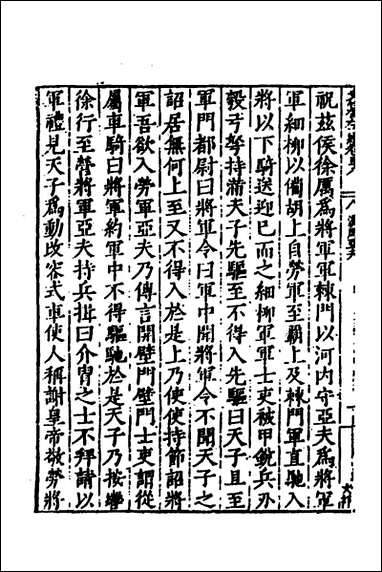 祝茲侯徐厲爲將軍軍棘門以河內守亞夫爲將軍
軍細柳以僃胡上自勞軍至覇上及棘門軍直馳入
將以下騎送迎已而之細柳軍軍士吏被甲銳兵刃
彀弓弩持滿天子先驅至不得入先驅曰天子且至
軍門都尉曰將軍令曰軍中聞將軍令不聞天子之
詔居無何上至又不得入於是上乃使使持節詔將
軍吾欲入勞軍亞夫乃傳言開壁門壁門士吏謂從
屬車騎曰將軍約軍中不得驅馳於是天子乃按轡
徐行至營將軍亞夫持兵揖曰介冑之士不拜請以
軍禮見天子爲動改容式車使人稱謝皇帝敬勞將